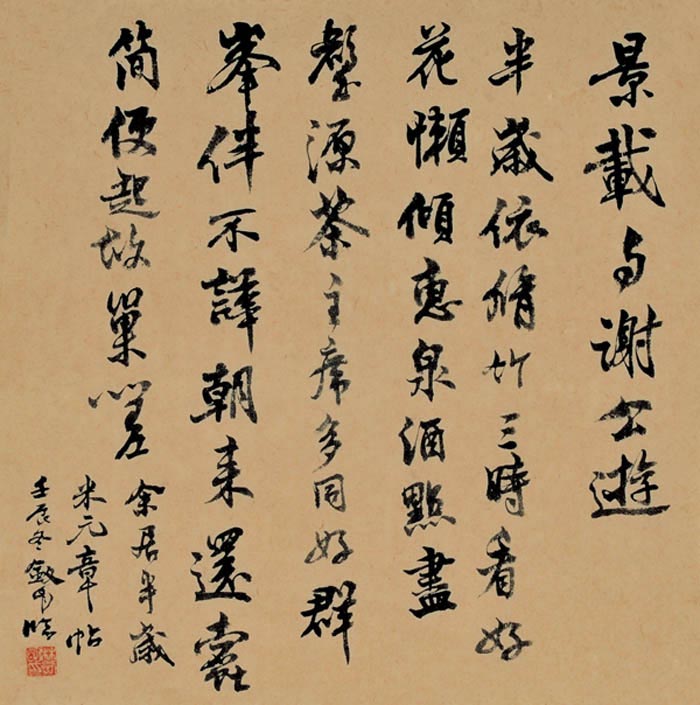 景載与謝公遊
半歲依脩竹三時看好
花懶傾惠泉酒點盡
壑源茶主席多同好群
峯伴不譁朝来還蠹
簡便起故巢嗟
余居半歲
米元章帖
壬辰冬臨